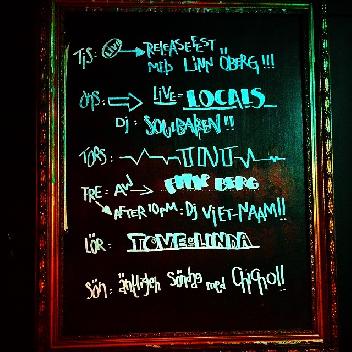 TIS: LIVE → RELEASEFEST
MED LINN ÖBERG!!!
ONS: LIVE= LOCALS
DJ: SOULBAREN!!
TORS: TNT
FRE: AW → BERG
AFTER 10PM: DJ VIET-NAAM!!
LÖR: TOVE & LINDA
SÖN: äntligen Söndag med Chicho!!